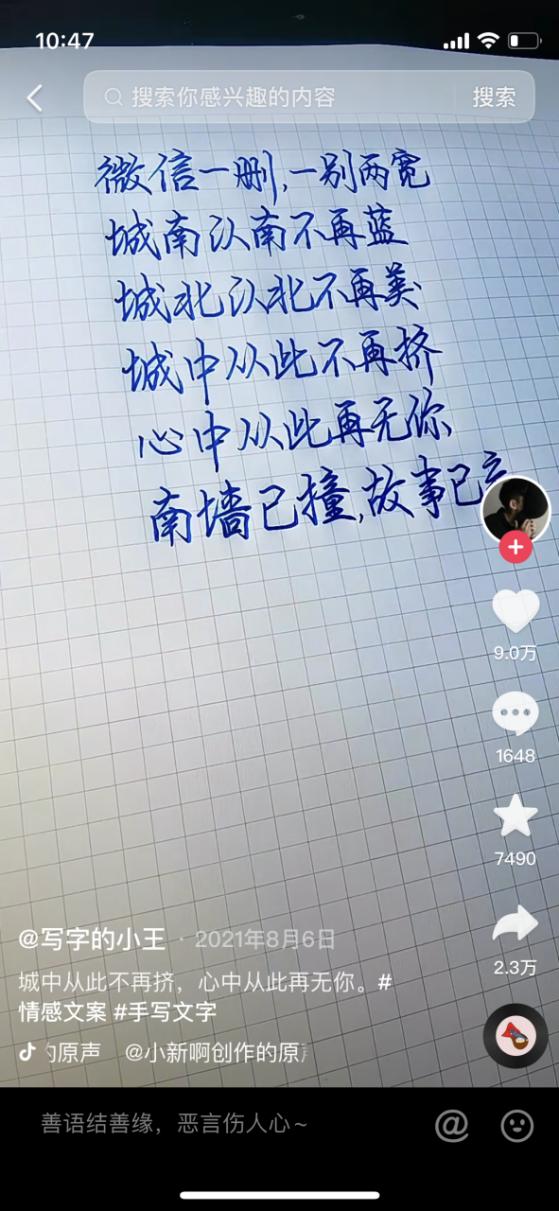 10:47
搜索你感兴趣的内容
搜索
微信一删,一别两宽
城南以南不再蓝
城北以北不再美
城中从此不再挤
心中从此再无你
南墙已撞,故事已
9.0万
1648
7490
2.3万
@写字的小王 · 2021年8月6日
城中从此不再挤，心中从此再无你。#
情感文案 #手写文字
的原声 @小新啊创作的原声
善语结善缘，恶言伤人心~